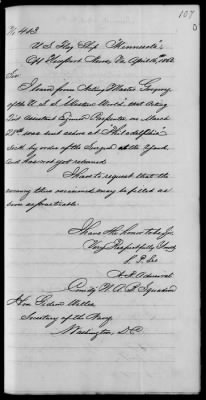 107
No 463
U.S. Flag Ship Minnesota
Off Newport News, Va. April 16th, 1863
Sir
I learn from Acting Master Gregory
of the U.S.S. "Western World" that Acting
2nd Assistant Engineer Carpenter on March
21st was sent ashore at Philadelphia
sick by order of the Surgeon at the Yard
and has not yet returned
I have to request that the
vacancy thus occasioned may be filled as
soon as practicable.
I have the honor to be, Sir
Very Respectfully Yours
S. P. Lee
A. R. Admiral
Comdg N. A. B. Squadron
Hon Gideon Welles
Secretary of the Navy
Washington, D.C.